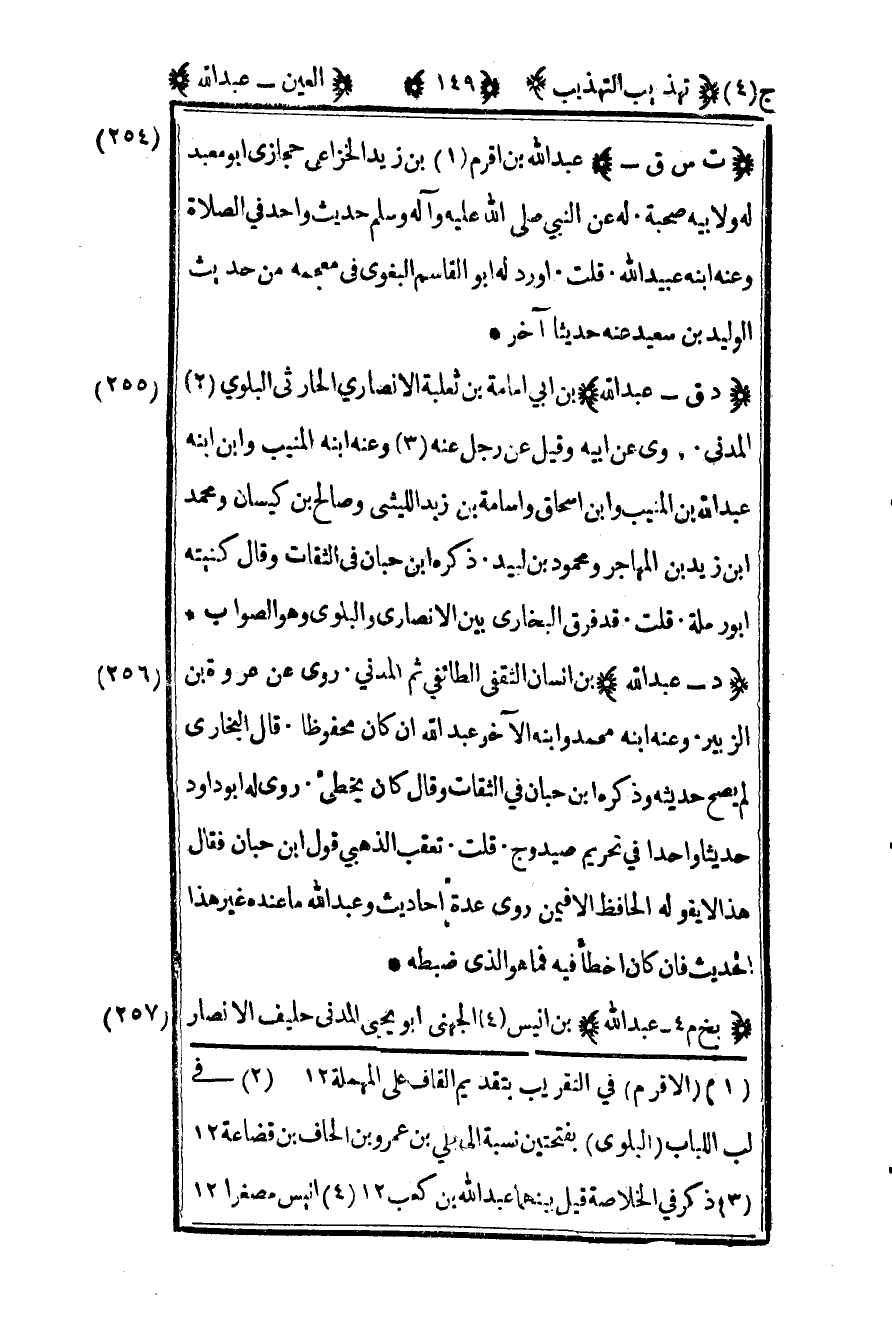 ج(٤) ﴿ تهذيب التهذيب ﴾ ﴿ ١٤٩ ﴾ ﴿ العين ـ عبدالله ﴾
﴿ ت س ق ـ ﴾ عبدالله بن اقرم (١) بن زيد الخزاعى حجازى ابو معبد (٢٥٤)
له ولابيه صحبة ٠ له عن النبي صلى الله عليه وآله وسلم حديث واحد في الصلاة
وعنه ابنه عبيدالله ٠ قلت ٠ اورد له ابو القاسم البغوى فى معجمه من حديث
الوليد بن سعيد عنه حديثا آخر *
﴿ د ق ـ عبدالله ﴾ بن ابي امامة بن ثعلبة الانصاري الحارثى البلوي (٢) (٢٥٥)
المدني ٠ روى عن ابيه وقيل عن رجل عنه (٣) وعنه ابنه المنيب وابن ابنه
عبدالله بن المنيب وابن اسحاق واسامة بن زيد الليثى وصالح بن كيسان ومحمد
ابن زيد بن المهاجر ومحمود بن لبيد ٠ ذكره ابن حبان فى الثقات وقال كنيته
ابو رملة ٠ قلت ٠ قد فرق البخارى بين الانصارى والبلوى وهو الصواب *
﴿ د ـ عبدالله ﴾ بن انسان الثقفى الطائفي ثم المدني ٠ روى عن عروة بن (٢٥٦)
الزبير ٠ وعنه ابنه محمد وابنه الآخر عبدالله ان كان محفوظا ٠ قال البخارى
لم يصح حديثه وذكره ابن حبان في الثقات وقال كان يخطئ ٠ روى له ابو داود
حديثا واحدا في تحريم صيد وج ٠ قلت ٠ تعقب الذهبي قول ابن حبان فقال
هذا لا يقوله الحافظ الا فيمن روى عدة احاديث وعبدالله ما عنده غير هذا
الحديث فان كان اخطأ فيه فما هو الذى ضبطه *
﴿ بخ م ٤ ـ عبدالله ﴾ بن انيس (٤) الجهنى ابو يحيى المدنى حليف الانصار (٢٥٧)
(١) (الاقرم) في التقريب بتقديم القاف على المهملة ١٢ (٢) في
لب اللباب (البلوى) بفتحتين نسبة الى بلي بن عمرو بن الحاف بن قضاعة ١٢
(٣) ذكر في الخلاصة قيل بينهما عبدالله بن كعب ١٢ (٤) انيس مصغرا ١٢